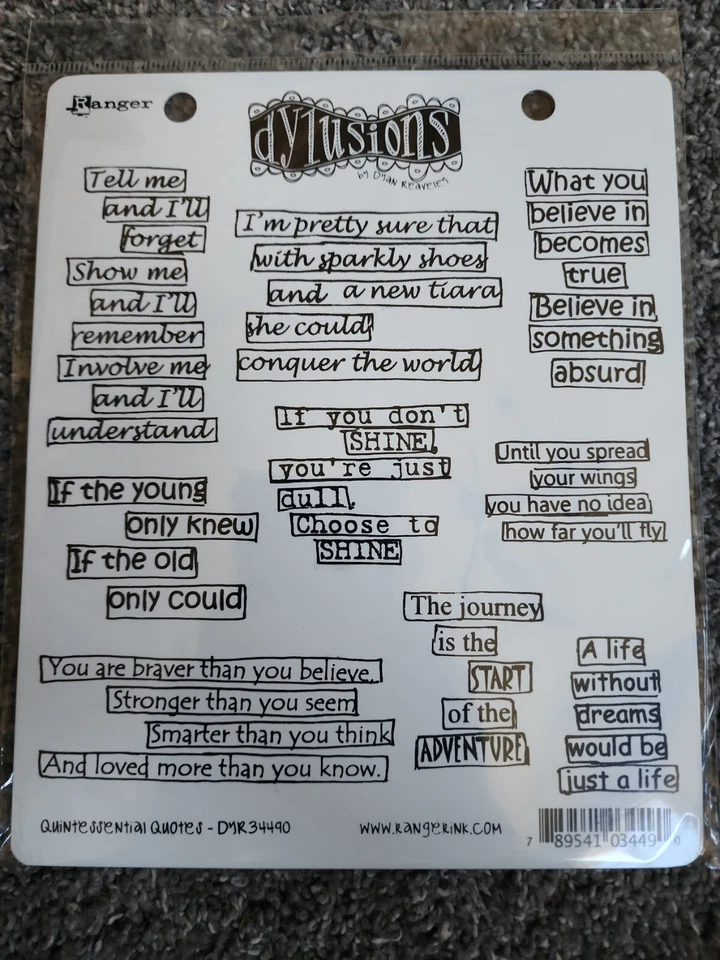 Ranger
dylusions
by Dyan Reaveley
Tell me
and I'll
forget
Show me
and I'll
remember
Involve me
and I'll
understand
I'm pretty sure that
with sparkly shoes
and a new tiara
she could
conquer the world
What you
believe in
becomes
true
Believe in
something
absurd
If you don't
SHINE,
you're just
dull.
Choose to
SHINE
Until you spread
your wings
you have no idea
how far you'll fly
If the young
only knew
If the old
only could
The journey
is the
START
of the
ADVENTURE
A life
without
dreams
would be
just a life
You are braver than you believe.
Stronger than you seem
Smarter than you think
And loved more than you know.
Quintessential Quotes - DYR34490
www.rangerink.com
7 89541 03449 0